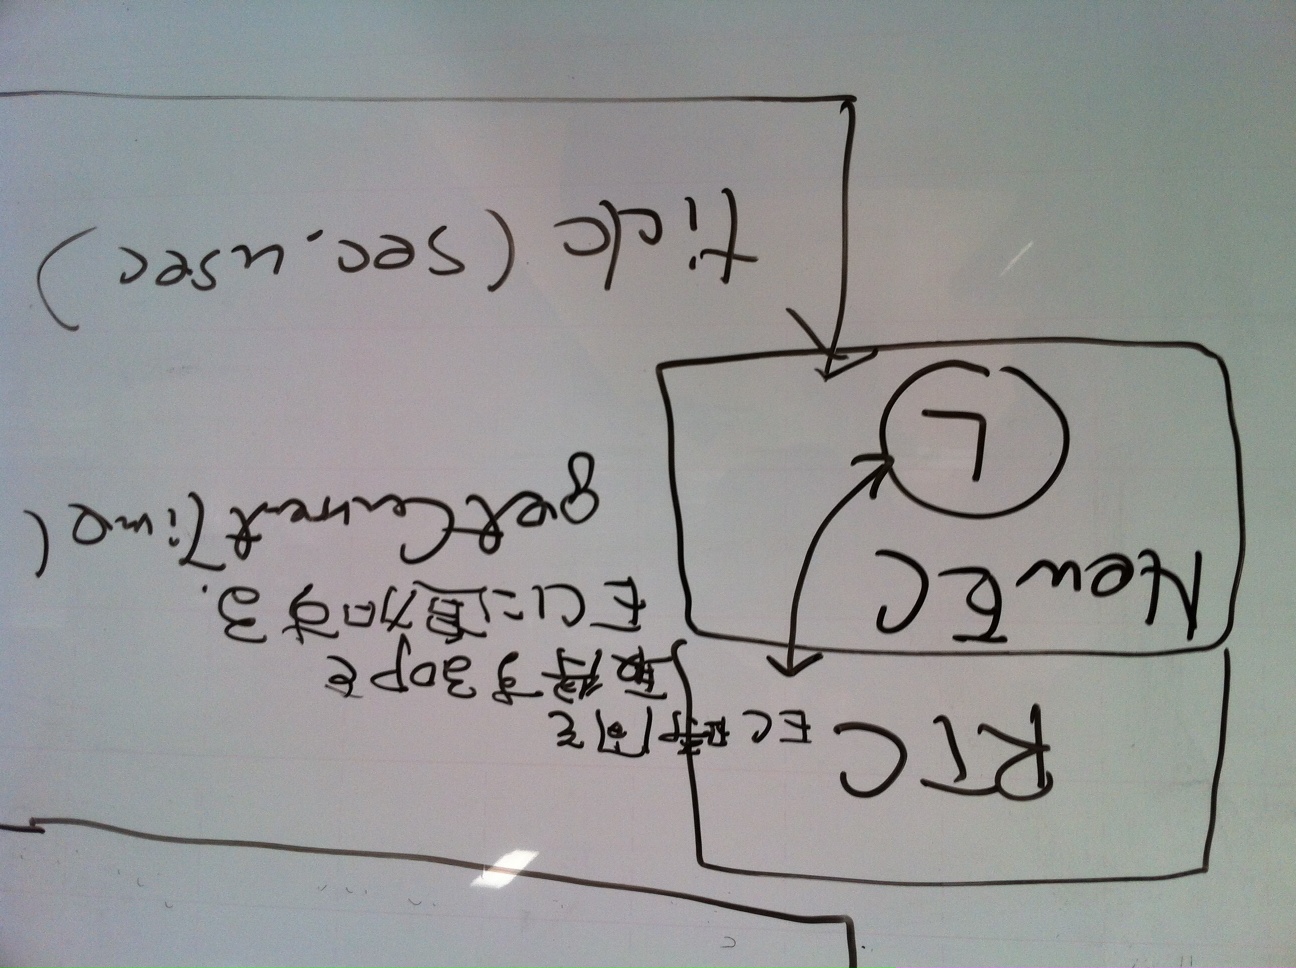 RTC
EC時間を
取得するOPを
ECに追加する.
New EC
getCurrentTime(
tick (sec.usec)